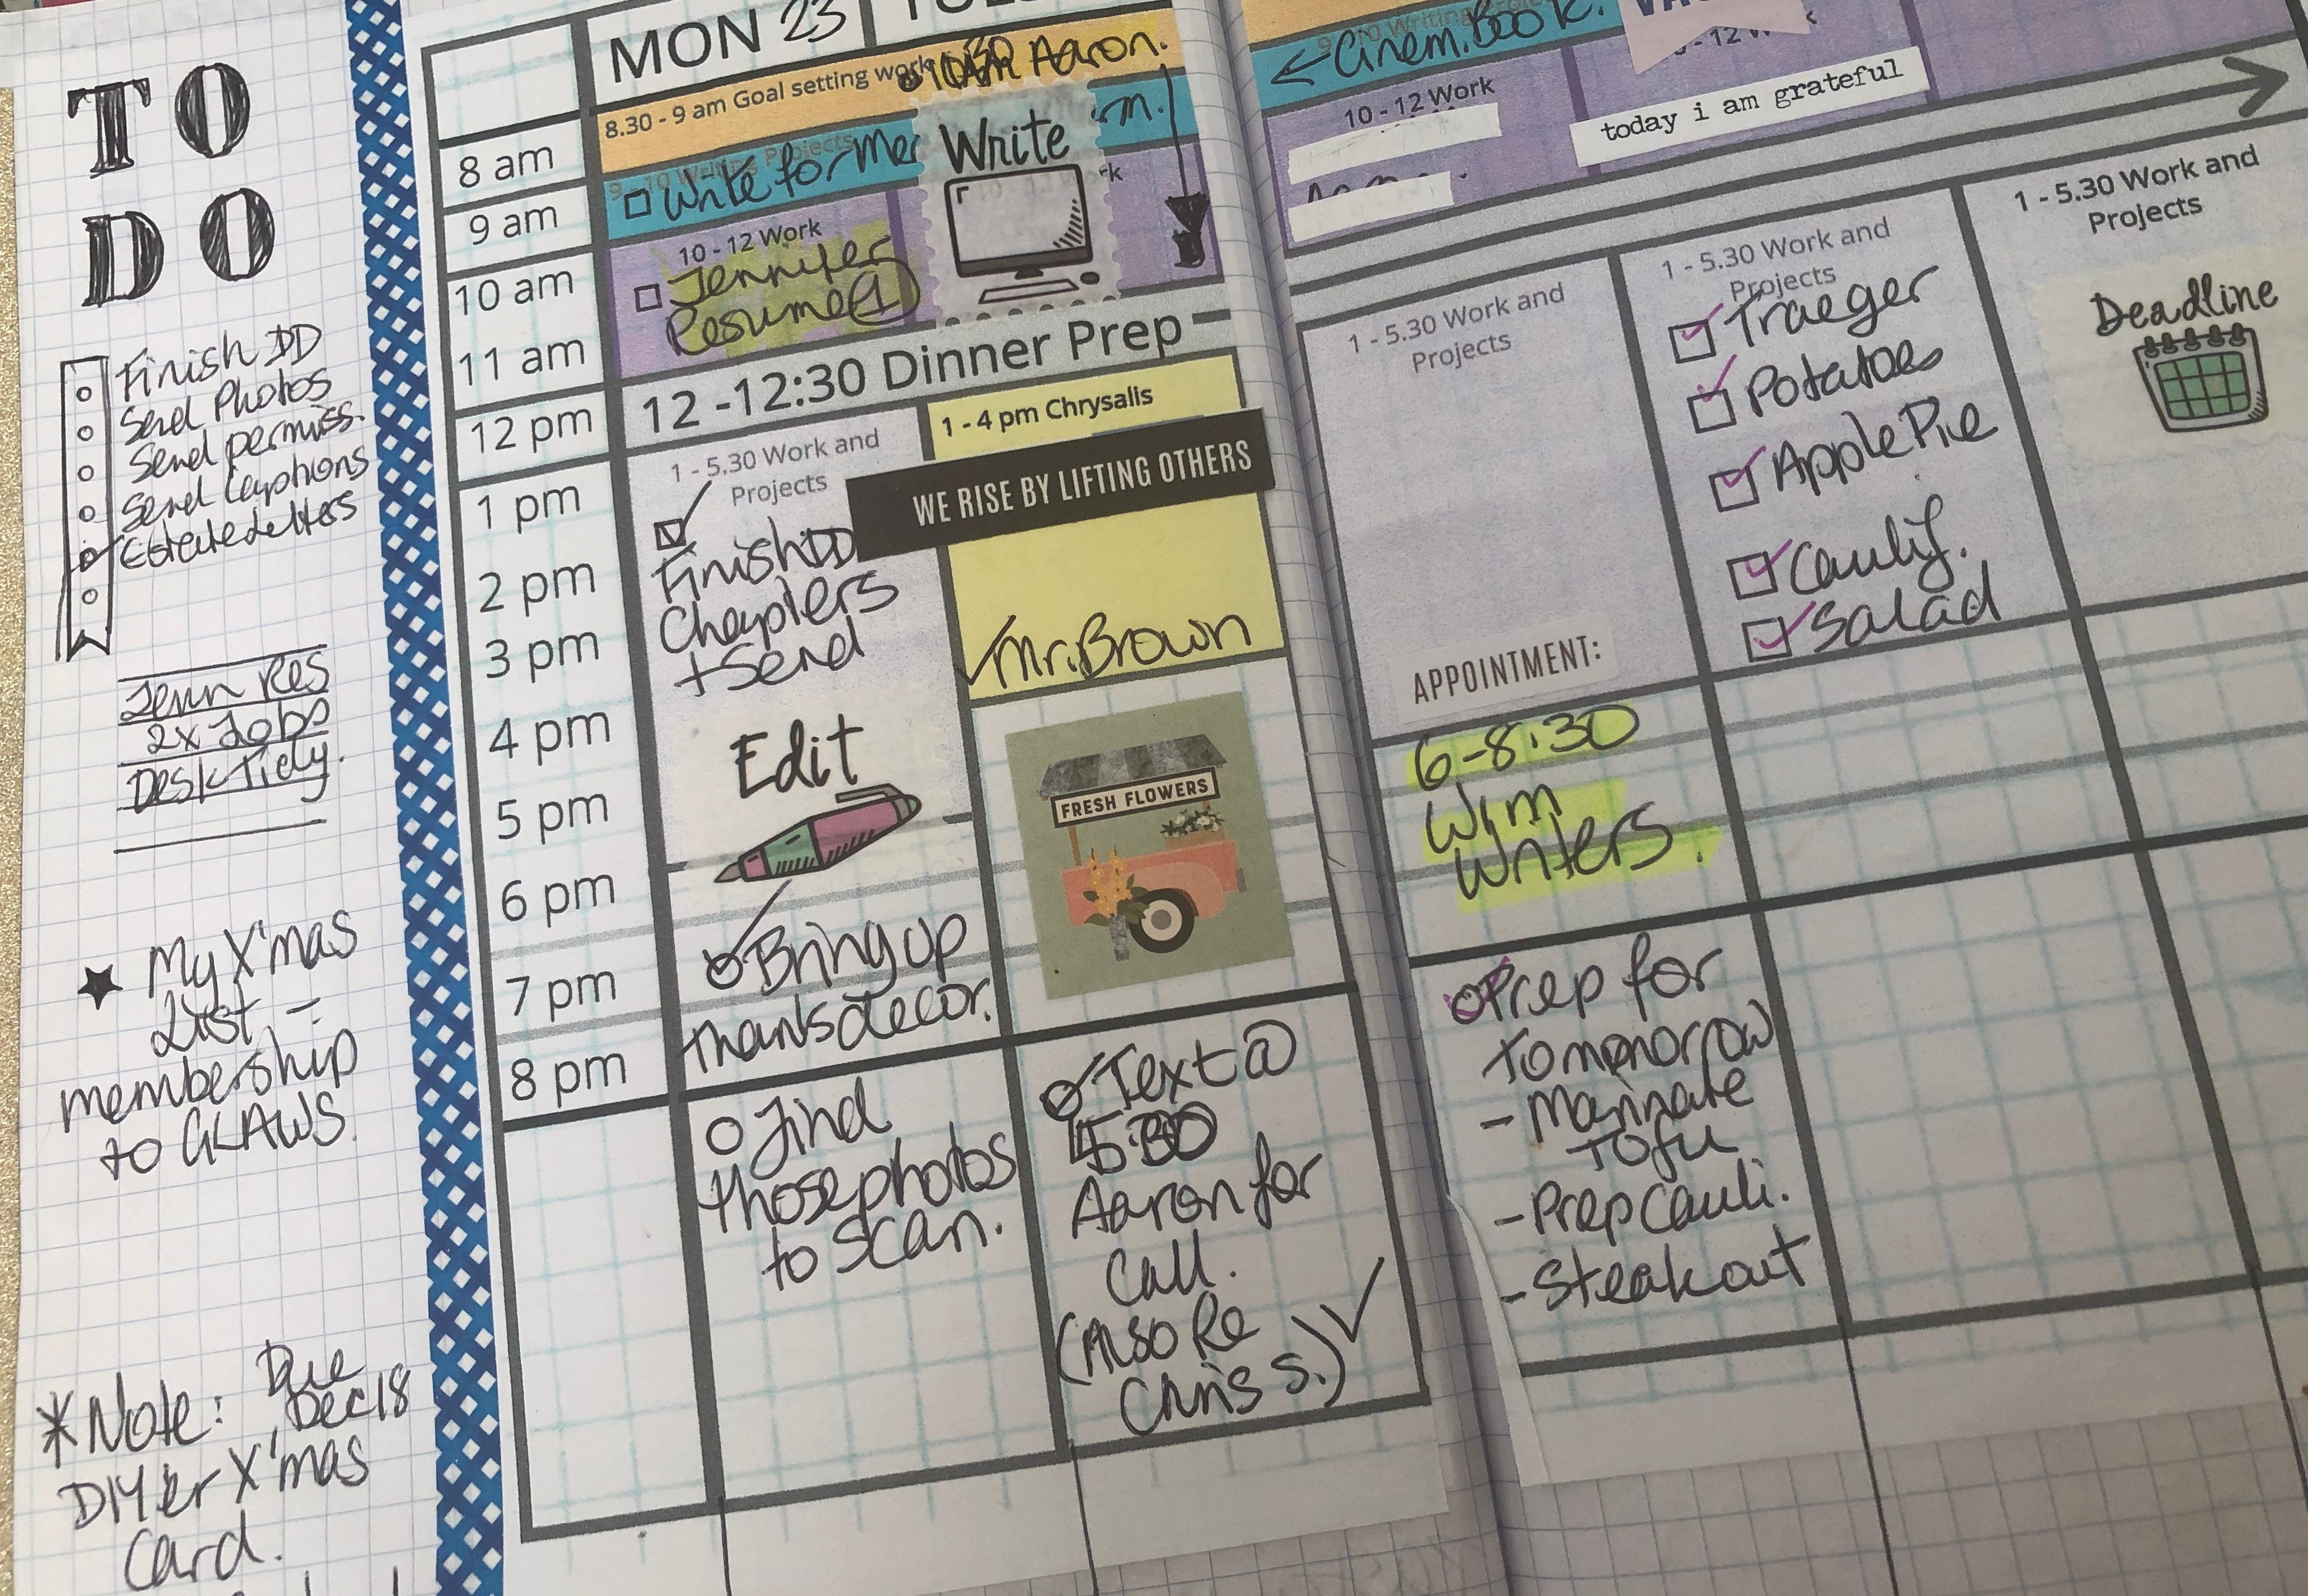 TO
DO
Finish DD
Send Photos
Send permiss.
Send Captions
Jenn Res
2x Jobs
Desk Tidy.
★ My X'mas
List -
membership
to GLAWS.
*Note: Due
Dec 18
DIY'er X'mas
Card.
MON 23
8 am
9 am
10 am
11 am
12 pm
1 pm
2 pm
3 pm
4 pm
5 pm
6 pm
7 pm
8 pm
8.30 - 9 am Goal setting work
Write for Mer
10 - 12 Work
Jennifer
Resume 1
Aaron.
Write
m.
12 -12:30 Dinner Prep
1 - 5.30 Work and
Projects
Finish DD
Chapters
+ Send
Edit
Bring up
thanks decor.
Find
those photos
to scan.
1 - 4 pm Chrysalis
WE RISE BY LIFTING OTHERS
Mr. Brown
FRESH FLOWERS
Text @
Aaron for
Call.
(Also Re
Chris S.)
← Cinem. Book.
10 - 12 Work
1 - 5.30 Work and
Projects
APPOINTMENT:
6-8:30
Wim
Writers.
Prep for
tomorrow
- Marinate
Tofu
- Prep Cauli.
- Steak out
today i am grateful
1 - 5.30 Work and
Projects
Traeger
Potatoes
Apple Pie
Caulif.
Salad
1 - 5.30 Work and
Projects
Deadline